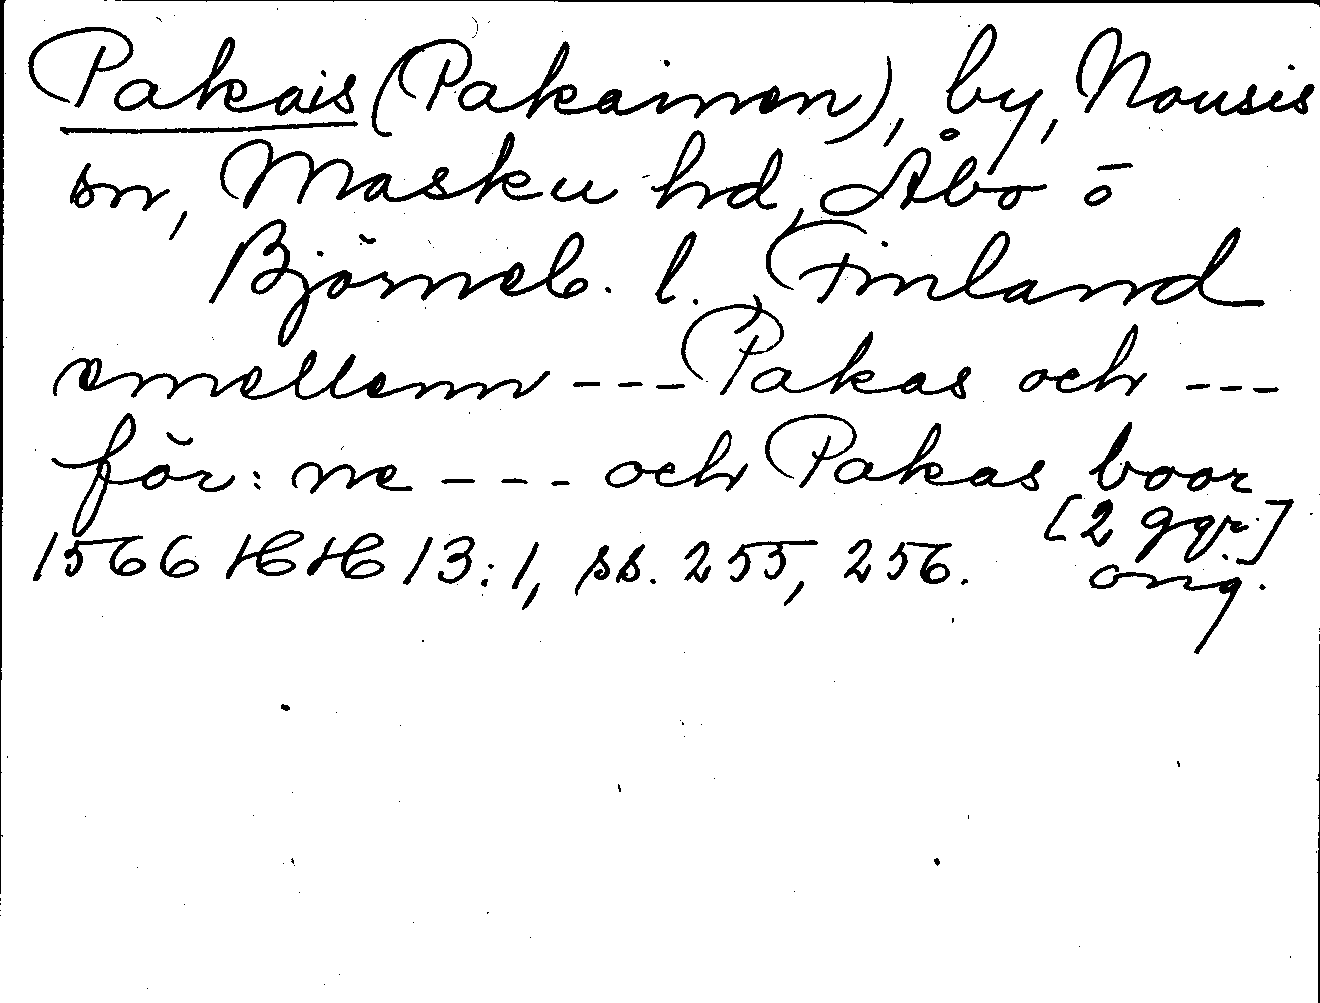 Pakais (Pakainen), by, Nousis
sn, Masku hd, Åbo ō
Björneb. l., Finland
emellenn --- Pakas och ---
för: ne --- och Pakas boor
[2 ggr.]
1566 HH 13:1, ss. 255, 256. orig.